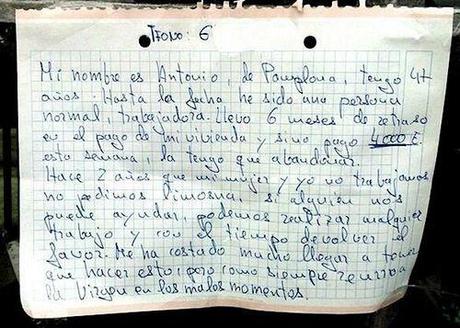 TFONO: 6
Mi nombre es Antonio, de Pamplona, tengo 47
años. Hasta la fecha he sido una persona
normal, trabajadora. Llevo 6 meses de retraso
en el pago de mi vivienda y sino pago 4000 €
esta semana, la tengo que abandonar.
Hace 2 años que mi mujer y yo no trabajamos
no pedimos limosna, si alguien nos
puede ayudar, podemos realizar cualquier
trabajo y con el tiempo devolver el
favor. Me ha costado mucho llegar a tener
que hacer esto, pero como siempre
la Virgen en los malos momentos.